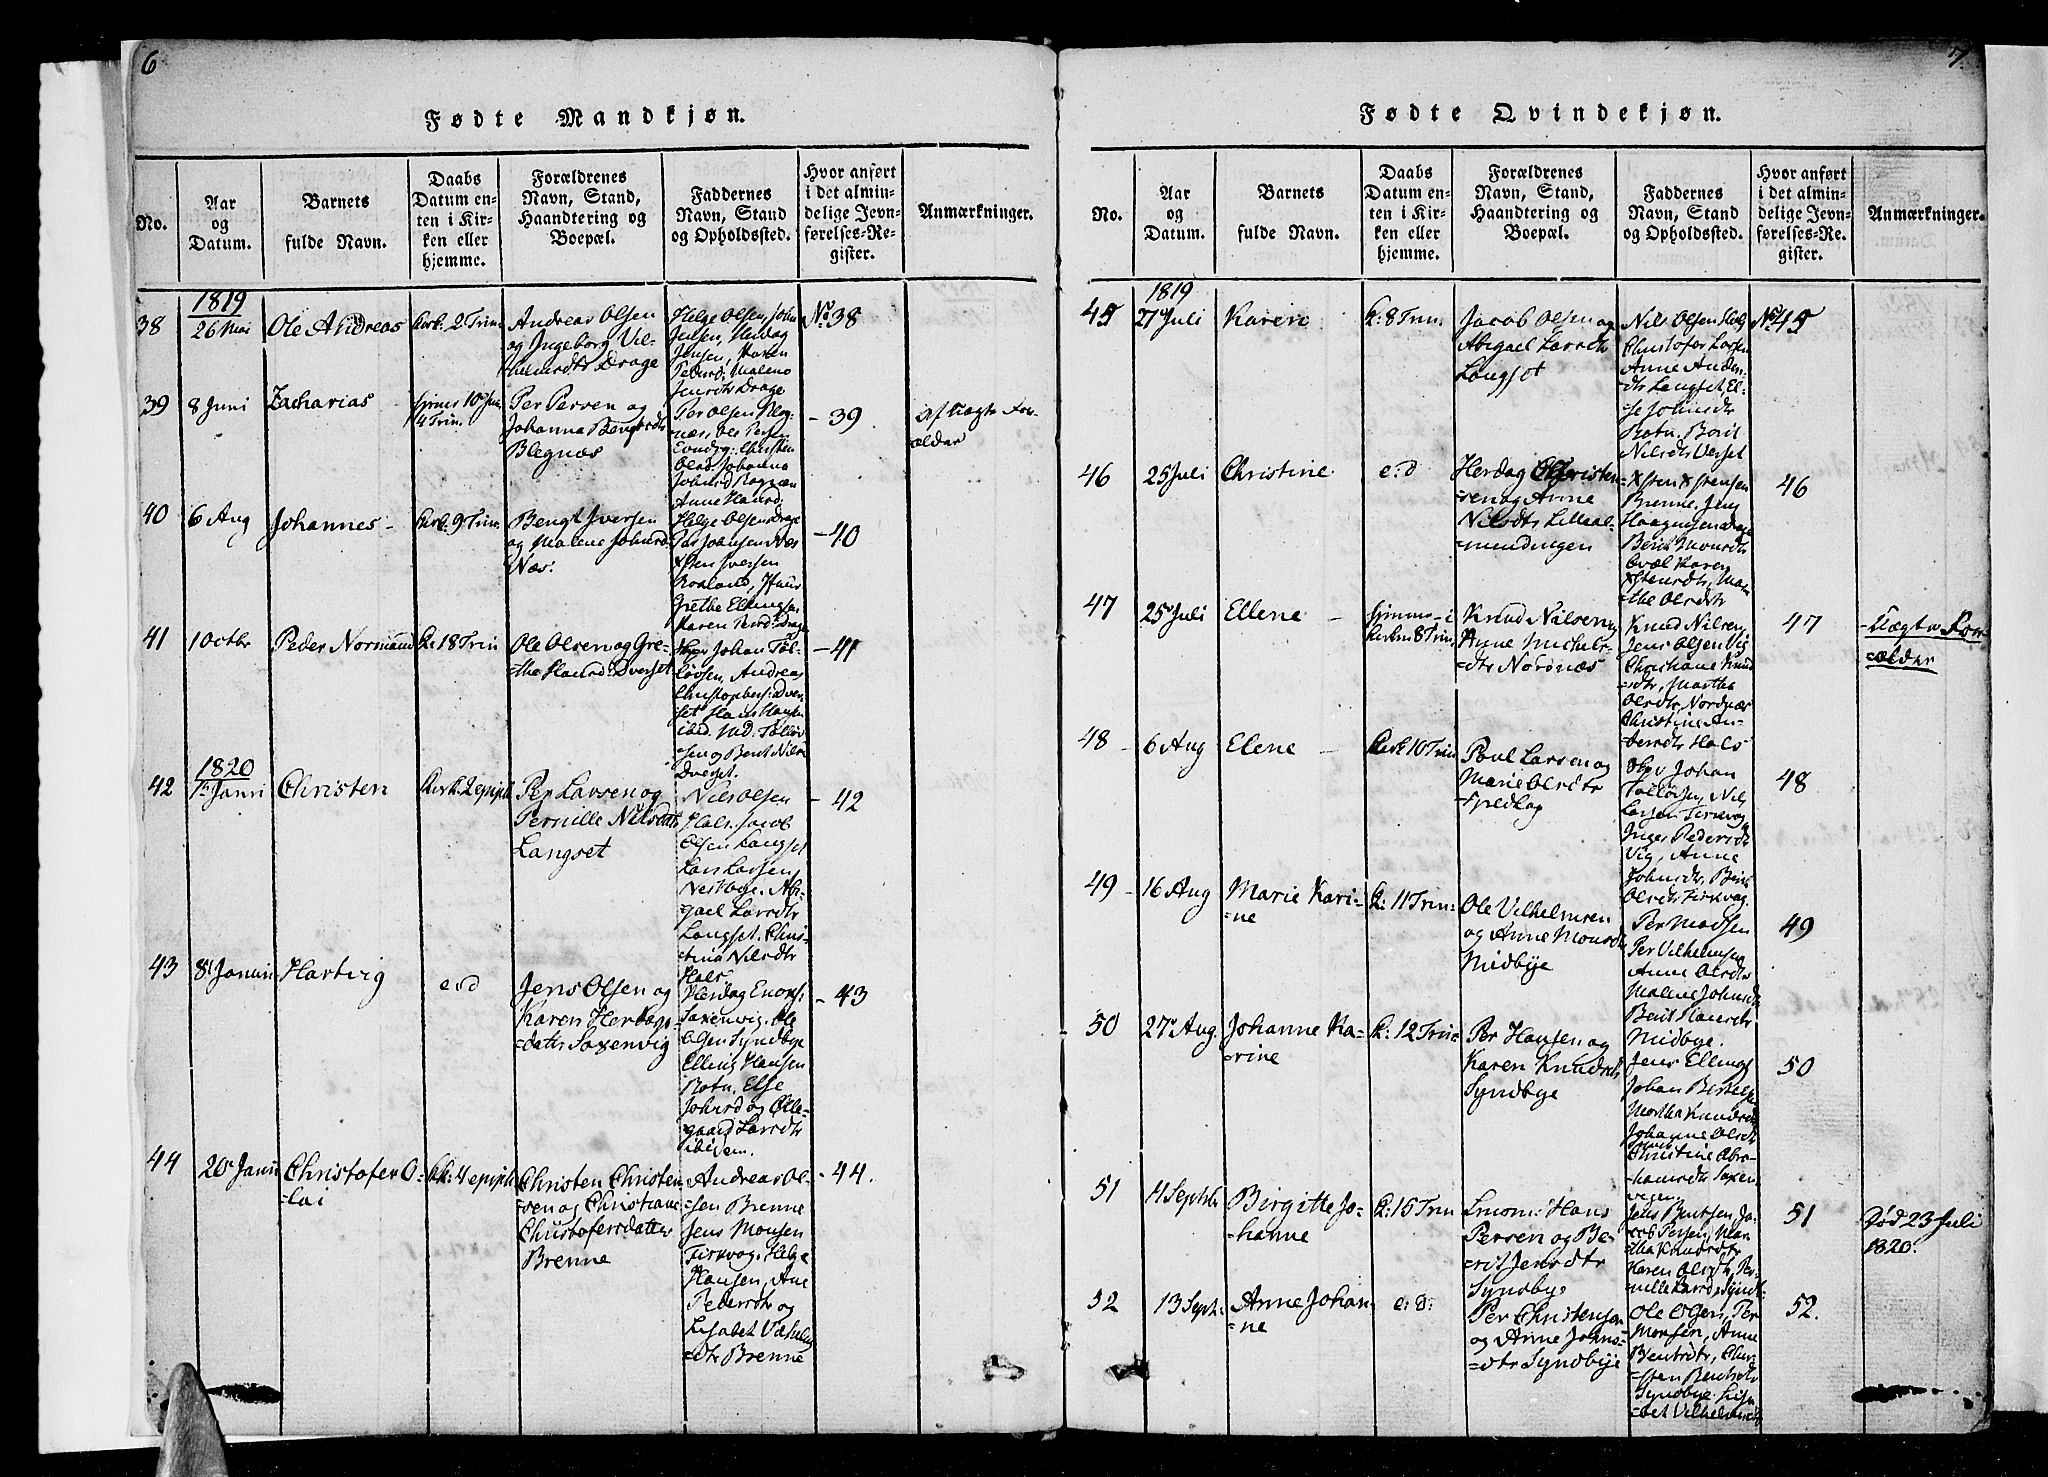 6
Fødte Mandkjøn.
No.
Aar
og
Datum.
Barnets
fulde Navn.
Daabs
Datum en-
ten i Kir-
ken eller
hjemme.
Forældrenes
Navn, Stand,
Haandtering og
Boepæl.
Faddernes
Navn, Stand
og Opholdssted.
Hvor anført
i det almin-
delige Jevn-
førelses-Re-
gister.
Anmærkninger.
38
1819
26 Mai
Ole Andreas
Kirk. 2 Trin.
Andreas Olsen
og Ingeborg Vil-
Drage
Helge Olsen, John
Jensen, Herdag
Jensen, Karen
Pedersd: Malene
Jensdtr Drage
No. 38
39
8 Juni
Zacharias
4 Trin.
Per Persen og
Johanna Bengtsdtr
Blegnæs
Per Olsen Bleg-
næs, Ole Pers.
Christen
Olsd. Johanna
Anne Hansd.
- 39
af Uægte For-
ældre
40
6 Aug
Johannes -
Kirk: 9 Trin.
Bengt Iversen
og Malene Johnsd.
Næs.
Helge Olsen Drage
Per Johansen Næs
Xsten Iversen
Grethe Ellingsd.
Karen Persd: Drage
- 40
41
1 Octbr
Peder Normand
K: 18 Trin
Ole Olsen og Gre-
=the Hansd: Dverset
Johan Tøl-
løvsen, Andreas
Christophers: Dver-
set Hans Hansen
ibid. Md. Tølløv-
sen og Berit Nilsd.
Dverset.
- 41
42
1820
1 Janri
Christen
Kirk: 2 epiph
Per Larsen og
Pernille Nilsdtr
Langset
Nils Olsen
Hals. Jacob
Olsen Langset
Lars Larsen
Neskage. Abi-
gael Larsdtr
Langset. Chris-
tina Nilsdtr
Hals
- 42
43
8 Janri
Hartvig
e:d
Jens Olsen og
Karen Herdags-
=datr Saxenvig
Herdag Enoxs:
Saxenvig. Ole
Olsen Syndbye
Elling Hansen
Rotn. Else
Johnsd og Olle-
gaard Larsdtr
ibidem.
- 43
44
20 Janri
Christofer O-
=lai
Kk: 4 epiph
Christen Christen-
=sen og Christiane
Christofersdatter
Brenne
Andreas Ol-
=sen Brenne
Jens Monsen
Tirkvog. Helge
Hansen, Ane
Pedersdtr og
Lisabet Vilhelms
=dtr Brenne
- 44.
7
Fødte Qvindekjøn.
No.
Aar
og
Datum.
Barnets
fulde Navn.
Daabs
Datum en-
ten i Kir-
ken eller
hjemme.
Forældrenes
Navn, Stand,
Haandtering og
Boepæl.
Faddernes
Navn, Stand
og Opholdssted.
Hvor anført
i det almin-
delige Jevn-
førelses-Re-
gister.
Anmærkninger.
45
1819
21 Juli
Karen
K: 8 Trin:
Jacob Olsen og
Abigael Larsdtr
Langset
Nils Olsen Hals
Christofer Larsen
Anne Anders-
dtr Langset, El-
=se Johnsdtr
Rotn. Berit
Nilsdtr Dverset
No. 45
46
25 Juli
Christine
e:d
Herdag Christen-
=sen og Anne
Nilsdtr Lillaal-
=mendingen
Xsten Xstensen
Brenne, Jens
Haagensen Drage
Berit Monsdtr
Karen
Xstensdtr, Mar-
the Olsdtr
46
47
25 Juli
Ellene -
hjemme - i
Kirken 8 Trin.
Knud Nilsen og
Anne Michels-
=dtr Nordnæs
Knud Nilsen,
Jens Olsen Vig
Christiane Knud
=sdtr, Martha
Olsdtr, Nordnæs
Christine An-
=dersdtr Hals
47
Uægte For-
=ældre
48
6 Aug
Elene -
Kirk 10 Trin
Poul Larsen og
Marie Olsdtr
Spedtog
Johan
Tølløvsen, Nils
Larsen Tirkvog
Inger Pedersdtr
Vig, Anne
Johnsdtr, Berit
Olsdtr Tirkvog.
48
49
16 Aug
Marie Kari-
=ne
K: 11 Trin:
Ole Vilhelmsen
og Anne Monsdtr
Midbye
Per Madsen
Per Vilhelmsen
Anne Olsdtr
Malene Johnsdtr
Berit Hansdtr
Midbye.
49
50
27 Aug.
Johanne Ka-
=rine
K: 12 Trin:
Per Hansen og
Karen Knudsdtr
Syndbye
Jens Ellings
Johan Bertelsen
Martha Knudsdtr
Johanne Olsdtr
Christine Abra-
hamsdtr Saxen-
vigen.
50
51
11 Septbr
Birgitte Jo-
=hanne
K: 15 Trin
Hans
Persen og Be-
=rit Jensdtr
Syndbye
Jens Bentsen, Ja-
cob Persen, Mar-
tha Knudsdtr
Karen Olsdtr, Per-
nille Larsd: Syndb.
51
Død 23 Juli
1820.
52
13 Septr.
Anne Johan-
=ne
e: d:
Per Christensen
og Anne Johns-
=dtr Syndbye
Ole Olsen, Per
Monsen, Anne
Bentsdtr, Chri-
Syndbye. Lisa-
=bet Vilhelmsdtr
52.